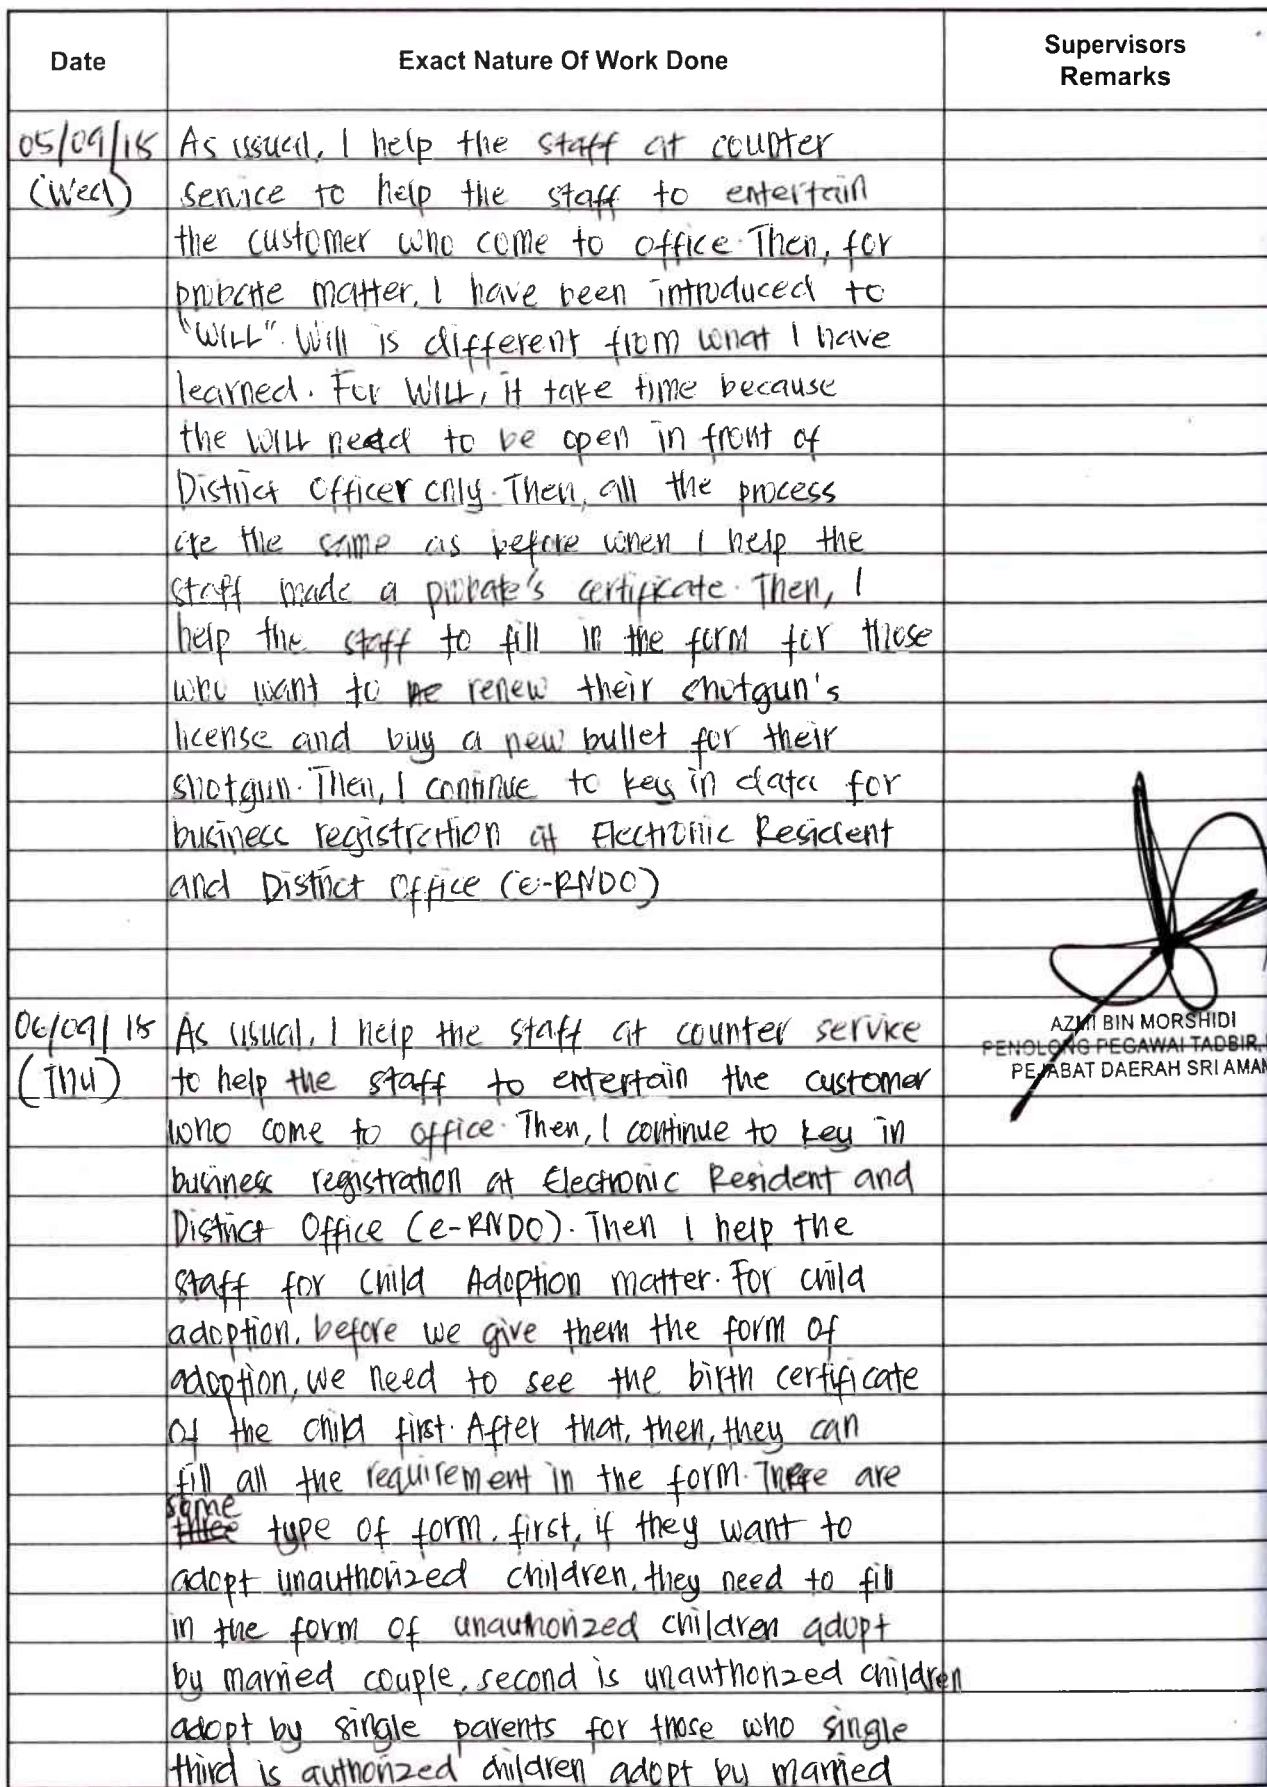 Date
Exact Nature Of Work Done
Supervisors
Remarks
05/09/18
(Wed)
As usual, I help the staff at counter
service to help the staff to entertain
the customer who come to office. Then, for
probate matter, I have been introduced to
"WILL". Will is different from what I have
learned. For WILL, it take time because
the WILL need to be open in front of
District Officer only. Then, all the process
are the same as before when I help the
staff made a probate's certificate. Then, I
help the staff to fill in the form for those
who want to renew their shotgun's
license and buy a new bullet for their
shotgun. Then, I continue to key in data for
business registration at Electronic Resident
and District Office (e-RNDO)
AZMI BIN MORSHIDI
PENOLONG PEGAWAI TADBIR,
PEJABAT DAERAH SRI AMAN
06/09/18
(Thu)
As usual, I help the staff at counter service
to help the staff to entertain the customer
who come to office. Then, I continue to key in
business registration at Electronic Resident and
District Office (e-RNDO). Then I help the
staff for Child Adoption matter. For child
adoption, before we give them the form of
adoption, we need to see the birth certificate
of the child first. After that, then, they can
fill all the requirement in the form. There are
some type of form. first, if they want to
adopt unauthorized children, they need to fill
in the form of unauthorized children adopt
by married couple, second is unauthorized children
adopt by single parents for those who single
third is authorized children adopt by married